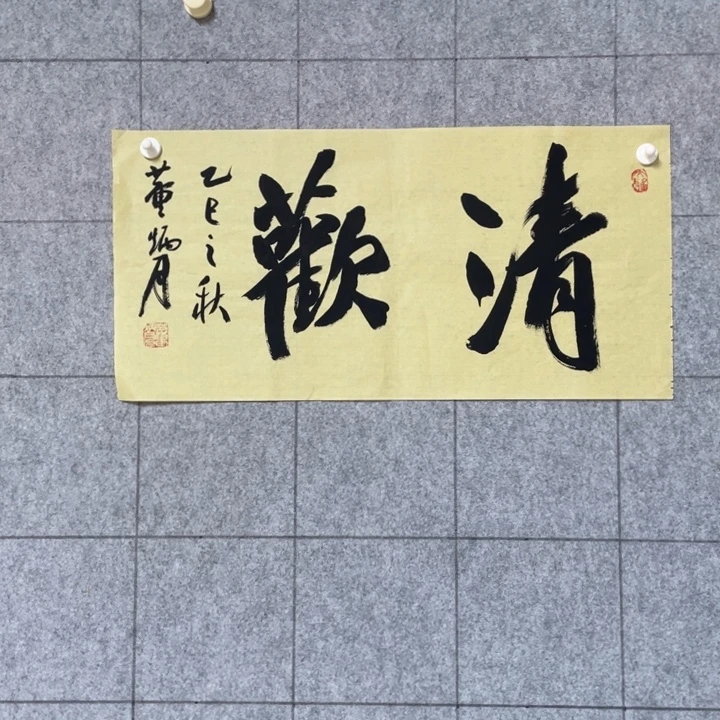 清歡
乙巳之秋
董炳月